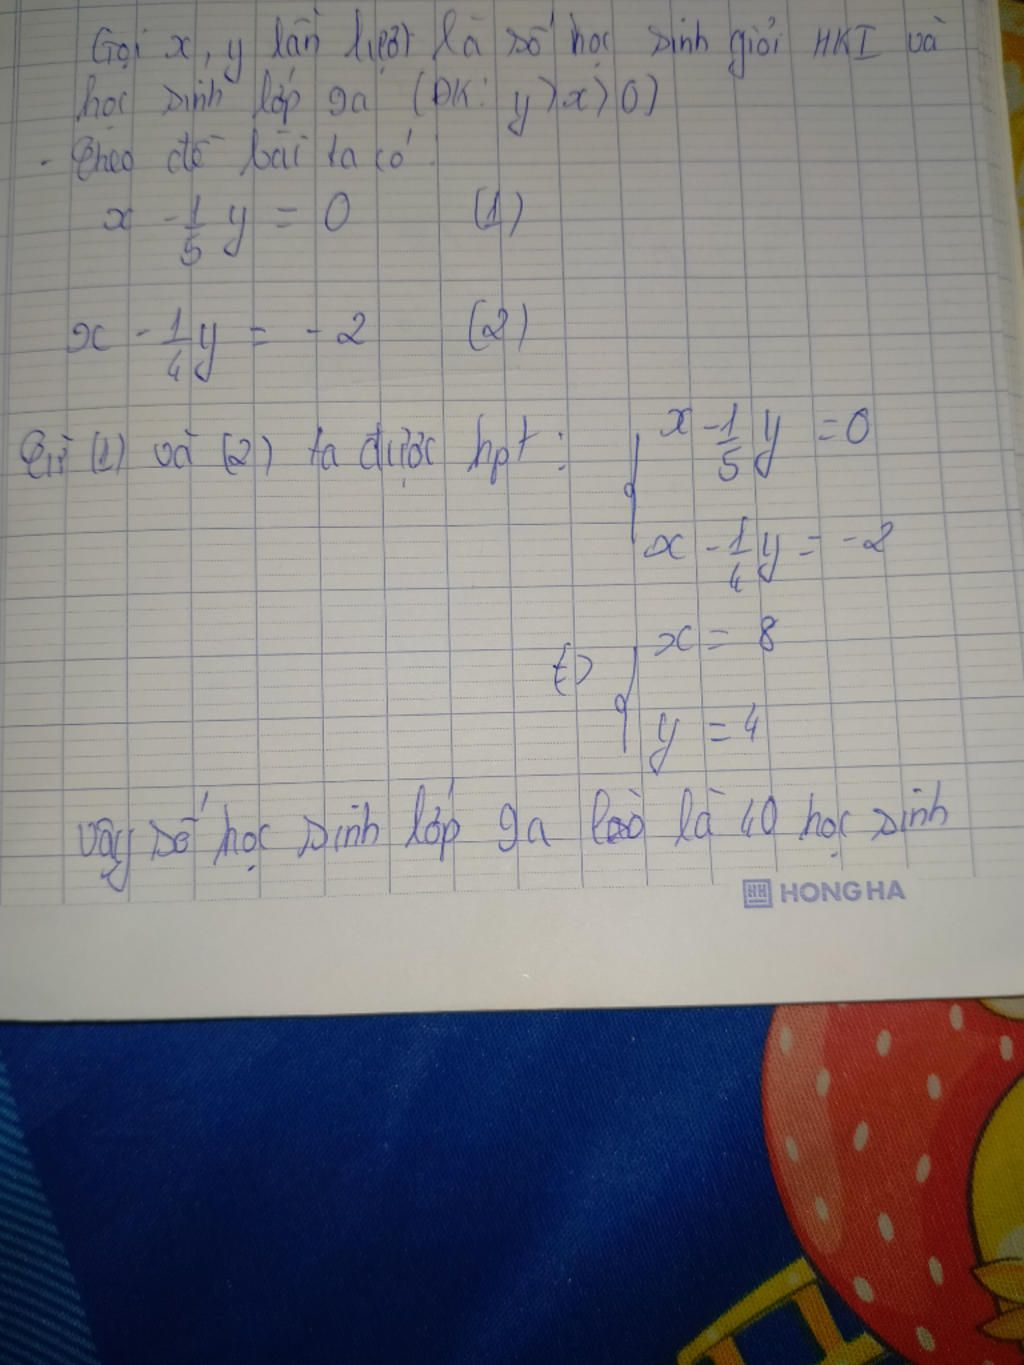 Gọi x, y lần lượt là số học sinh giỏi HKI và
học sinh lớp 9a (ĐK: y > x > 0)
Theo đề bài ta có
x - 1/5 y = 0 (1)
x - 1/4 y = - 2 (2)
Từ (1) và (2) ta được hpt :
x - 1/5 y = 0
x - 1/4 y = -2
<=> x = 8
y = 4
Vậy số học sinh lớp 9a là 40 học sinh
HH HONG HA